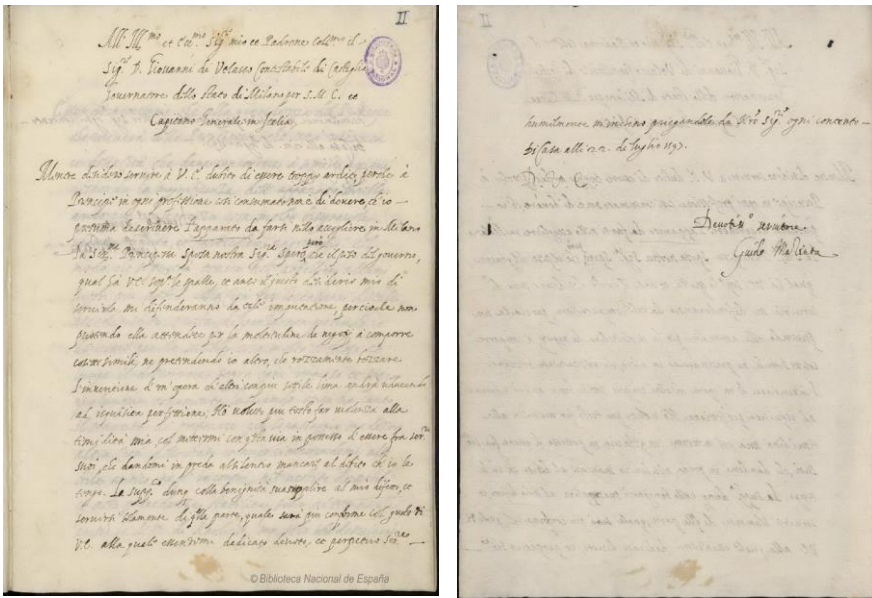 II
All' Ill.mo et Ecc.mo Sig.r mio et Padrone Coll.mo il
Sig.r D. Giovanni di Velasco Contestabile di Castiglia
Governatore dello Stato di Milano per S. M. C. et
Capitano Generale in Italia
desidero servire à V. E. dubito di essere troppo ardito, perche à
Principi in ogni professione così consumatione di dovere ch'io
l'apparato da farsi nello accogliere in Milano
la Principessa Sposa nostra Sig.ra Spero, però che il peso del governo,
qual hà V. E. sopra le spalle, et anco il giusto desiderio mio di
servirla mi difenderanno da tale imputatione, percioche non
potendo ella attendere per la moltitudine de negotij à comporre
cose simili, ne pretendendo io altro, che rozzamente bozzare
l'inventione d'un'opera ch'altri con più sottile lima andrà riducendo
ad isquisita perfettione, Hò voluto piu tosto far violenza alla
timidità mia col mettermi con questa via in possesso d'essere fra ser.ri
suoi, che dandomi in preda al silentio mancare al debito ch'io le
tengo. La supp.co colla benignità sua supplire al mio difetto, et
servirsi solamente di quella parte, quale sarà più conforme al gusto di
V. E. alla quale dedicato devoto, et perpetuo Ser.re
© Biblioteca Nacional de España
humilmente m'inchino pregandole da N.ro Sig.re ogni contento
Di Casa alli 22. di luglio 1597.
Di V. E.
Devotiss.o servitore
Guido Mazenta